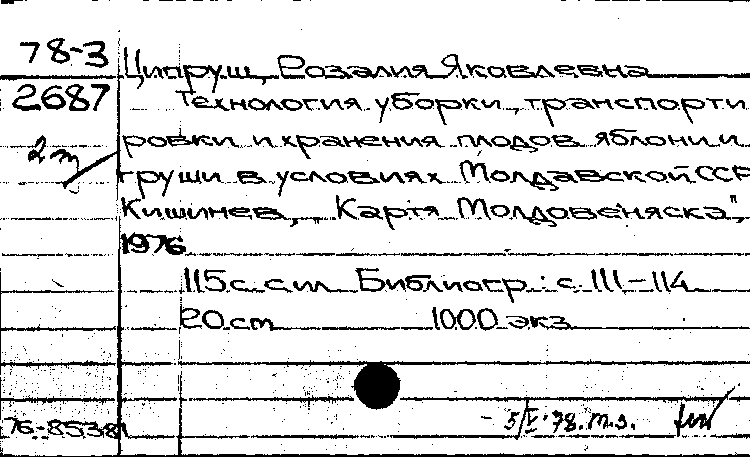 78-3
Ципруш, Розалия Яковлевна
2687
Технология уборки, транспорти
ровки и хранения плодов яблони и
2 т
груши в условиях Молдавской ССР
Кишинев, "Картя Молдовеняска",
1976
115 с. с ил. Библиогр.: с. 111-114
20 см 1000 экз.
76-85381
- 5/V-78. т.з.